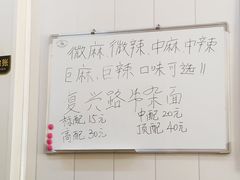 微麻,微辣,中麻,中辣
巨麻,巨辣 口味可选!!
复兴路牛杂面
标配15元 中配20元
高配30元 顶配40元